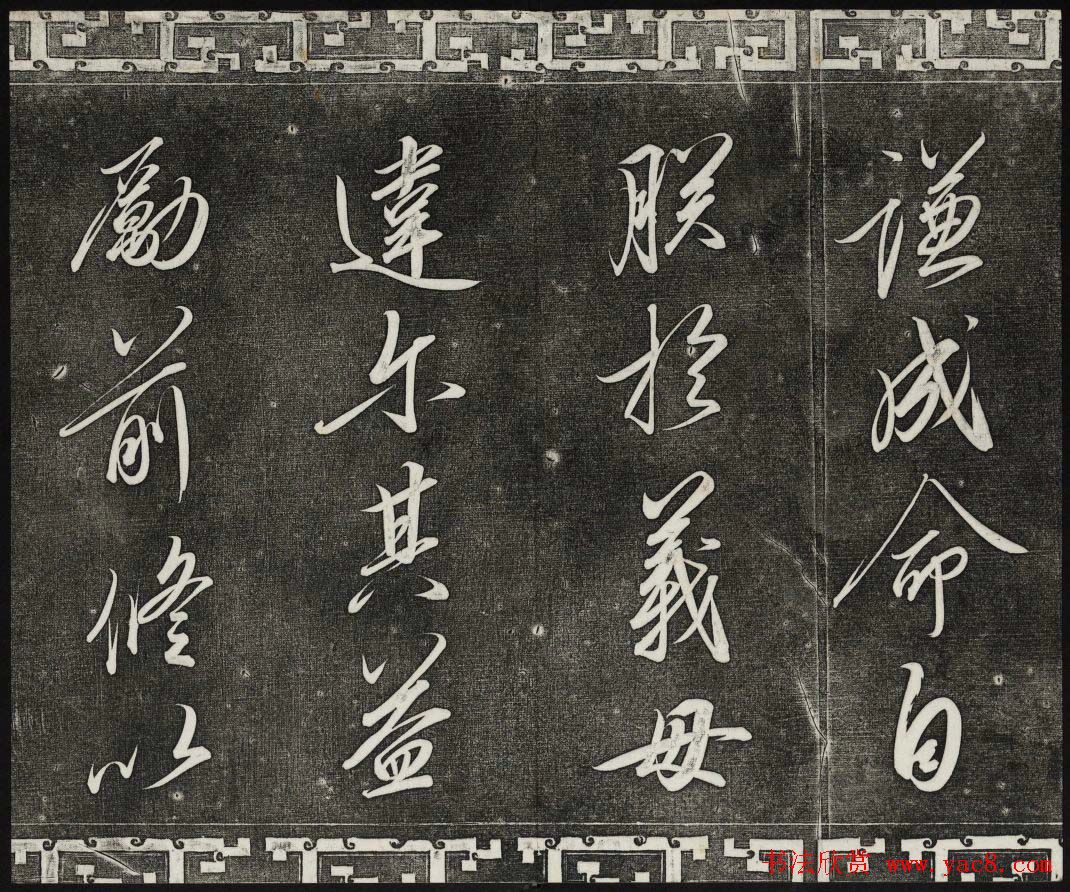 謙成命自
朕於義毋
違尔其益
勵前修以
书法欣赏 www.yac8.com